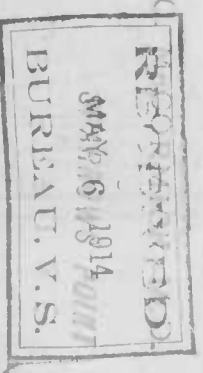 RECEIVED
MAY 6 1914
BUREAU. V. S.